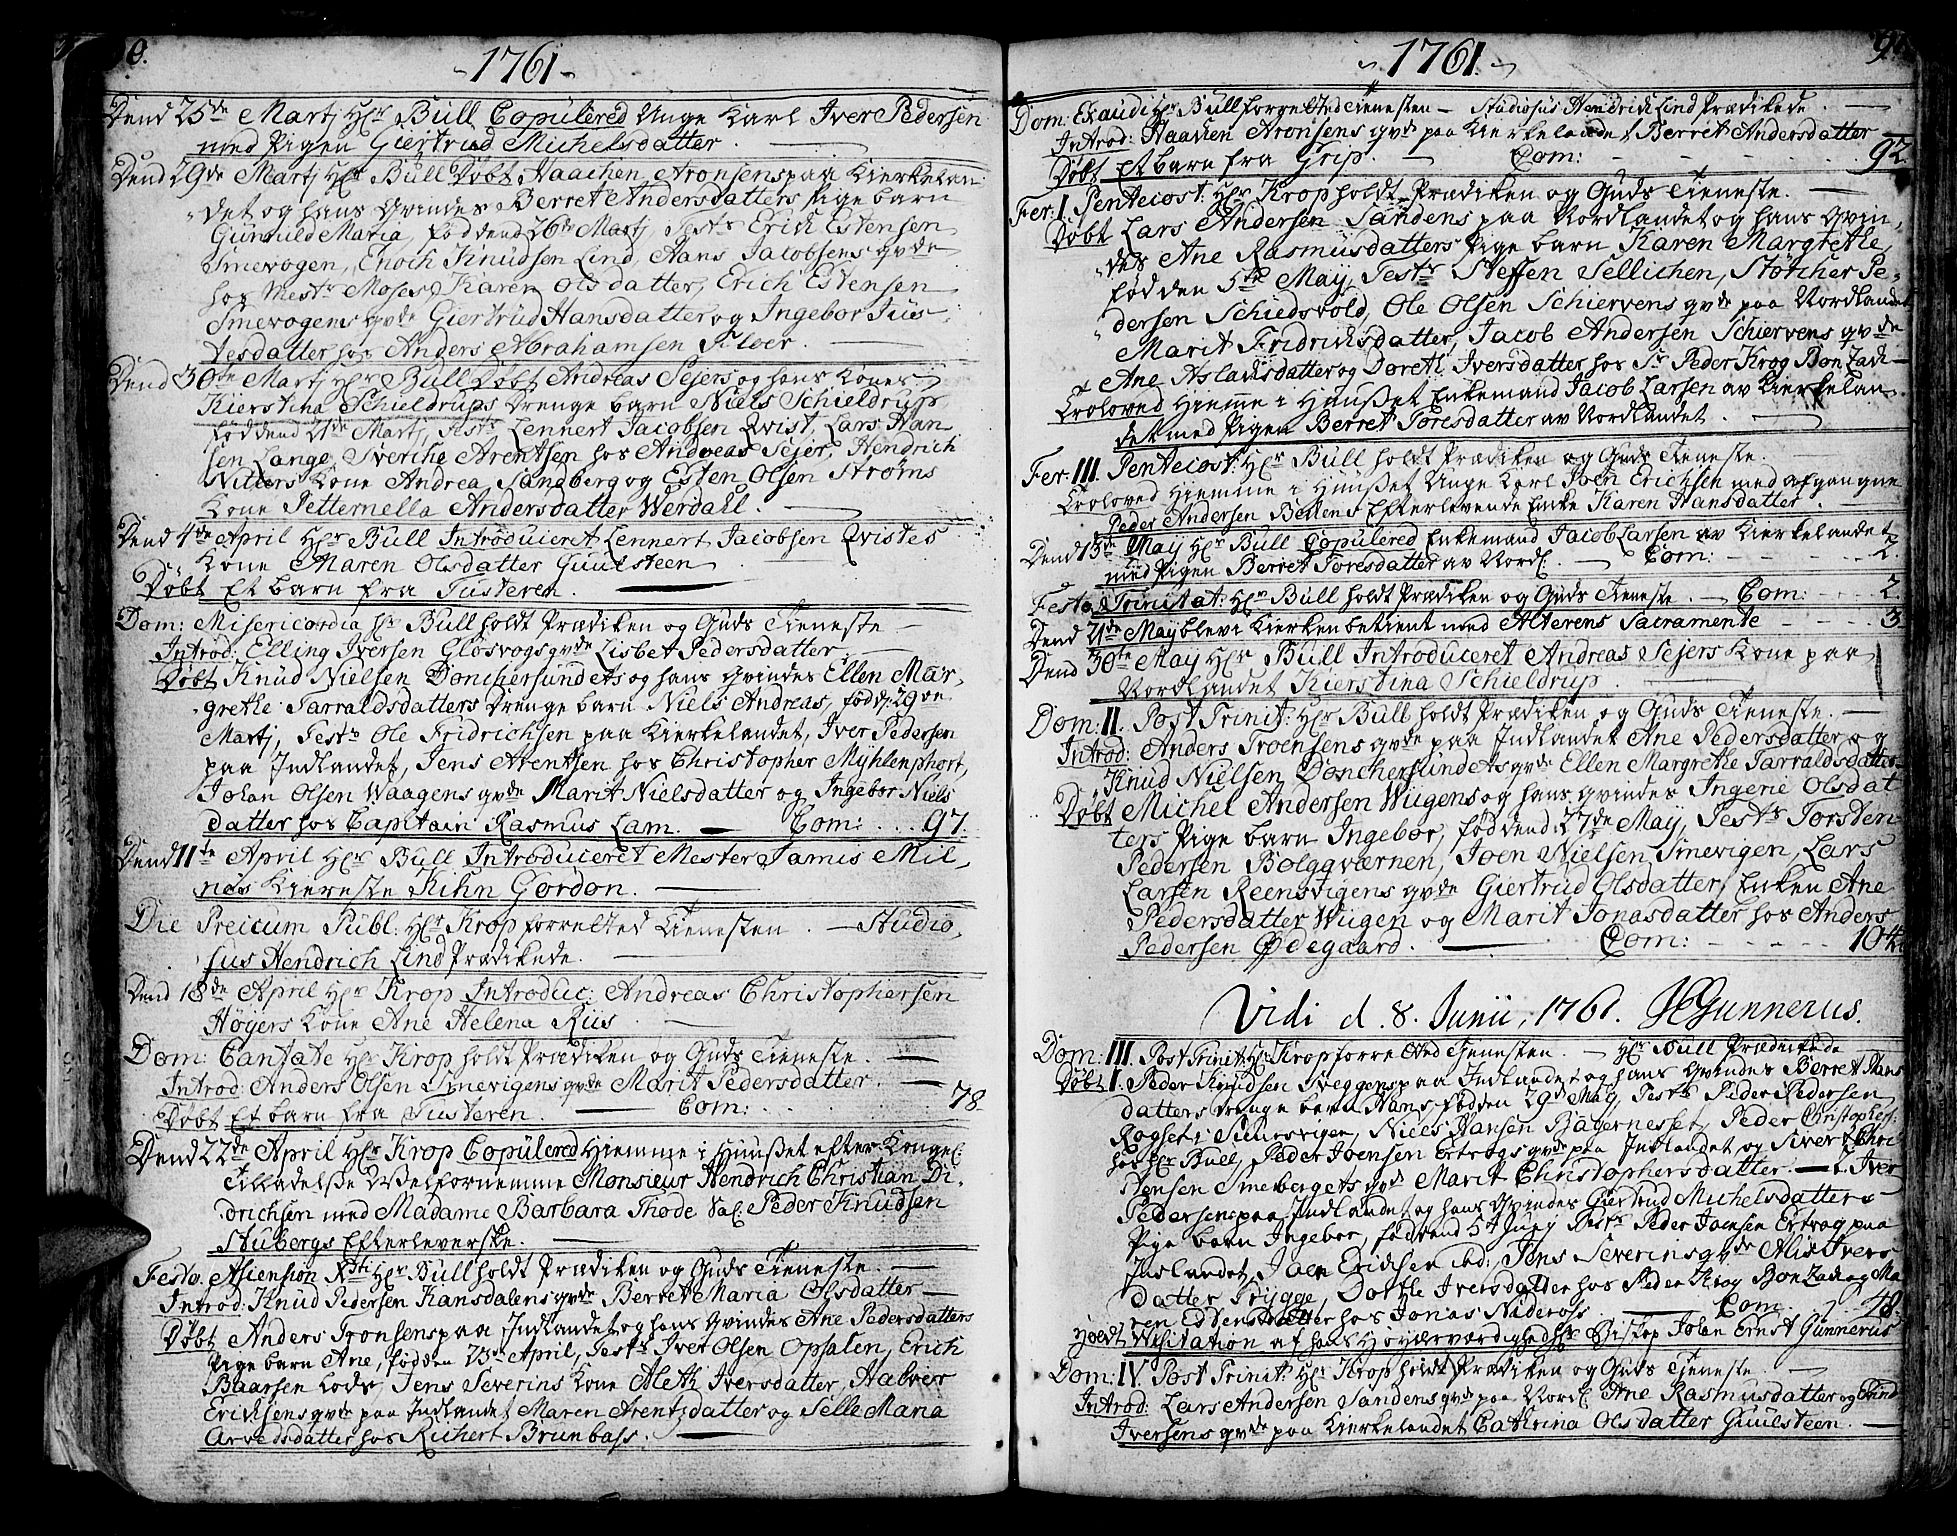 0.
-1761-
Dend 25de Martj Hr Bull Copulered Unge Karl Iver Pedersen
med Pigen Giertrud Michelsdatter.
Dend 29de Martj Hr Bull Døbt Haachen Aronsens paa Kierkelan
det og hans Qvindes Berret Andersdatters Pige barn
Gunnild Maria, fød dend 26te Martj Test: Erich Estensen
Smevogen, Enoch Knudsen Lind, Hans Jacobsens qvde
hos Mestr Moses, Karen Olsdatter, Erich Estensen
Smevogens qvde Giertrud Hansdatter og Ingebor Jus
tesdatter hos Anders Abrahamsen Floer.
Dend 30te Martj Hr Bull Døbt Andreas Sejers og hans Kones
Kierstina Schieldrups Drenge barn Niels Schieldrup
fød dend 21de Martj, Test: Lennert Jacobsen Qvist, Lars Han
sen Lange, Sverche Arentsen hos Andreas Sejer, Hendrich
Nitters Kone Andrea Sandberg og Esten Olsen Strøms
Kone Petternella Andersdatter Werdahl.
Dend 4de April Hr Bull Introduceret Lennert Jacobsen Qvistes
Kone Maren Olsdatter Guulsteen
Døbt Et barn fra Tusteren.
Dom: Misericordia Hr Bull holdt Prædiken og Guds Tieneste
Introd: Elling Iversen Glosvogs qvde Lisbet Pedersdatter.
Døbt Knud Nielsen Donchersundets og hans Qvindes Ellen Mar,
grethe Tarraldsdatters Drenge barn Niels Andreas, fød d: 29de
Martj, Test: Ole Fridrichsen paa Kierkelandet, Iver Pedersen
paa Indlandet, Jens Arentsen hos Christopher Myhlenphort,
Johan Olsen Waagens qvde Marit Nielsdatter og Ingebor Niels
datter hos Capitain Rasmus Lam. Com: .... 97.
Dend 11te April Hr Bull Introduceret Mester Jamis Mil,
nes Kiereste Kihn Gordon.
Die Precum Publ: Hr Krop forrelted Tienesten. Studio,
sus Hendrich Lind Prædikede.
Dend 18de April Hr Krop Introduc: Andreas Christophersen
Høyers Kone Ane Helena Riis
Dom: Cantate Hr Krop holdt Prædiken og Guds Tieneste.
Introd: Anders Olsen Smevigens qvde Marit Pedersdatter.
Døbt Et barn fra Tusteren. Com: 78.
Dend 22de April Hr Krop Copulered Hiemme i Huuset efter Kongel:
Tilladelse Velfornemme Monsieur Hendrich Christian Di,
drichsen med Madame Barbara Thode Sal. Peder Knudsen
Stubergs Efterleverske.
Festo. Ascension Xsti Hr Bull holdt Prædiken og Guds Tieneste.
Introd: Knud Pedersen Kansdalens qvde Berret Maria Olsdatter
Døbt Anders Tronsens paa Indlandet og hans Qvindes Ane Pedersdatters
Pige barn Ane, fød den 23de April, Test: Iver Olsen Opsalen, Erich
Baarsen Lode, Jens Severins Kone Aleth Iversdatter, Halver
Erichsens qvde paa Indlandet Maren Arentzdatter og Selle Maria
Arvedsdatter hos Richert Brunbass.
1761.
Dom: Exaudi Hr Bull forrelted Tienesten - Studiosus Hendrich Lind Prædikede.
Introd: Haachen Aronsens qvde paa Kierkelandet Berret Andersdatter
Døbt Et barn fra Grip. Com: 92.
Fer: I. Penteicost: Hr Krop holdt Prædiken og Guds Tieneste.
Døbt Lars Andersen Sandens paa Nordlandet og hans Qvin,
des Ane Rasmusdatters Pige barn Karen Margrethe,
fød den 5te May, Test: Steffen Sellichen, Støtcher Pe,
dersen Schiedsvold, Ole Olsen Schiervens qvde paa Nordlandet
Marit Fridrichsdatter, Jacob Andersen Schiervens qvde
Ane Aslachsdatter og Doreth Iversdatter hos Sr Peder Krog Bonzach
Troloved Hiemme i Huuset Enkemand Jacob Larsen av Kierkelan,
det med Pigen Berret Toresdatter av Nordlandet.
Fer: III. Penteicost: Hr Bull holdt Prædiken og Guds Tieneste.
Troloved Hiemme i Huuset Unge Karl Joen Erichsen med afgangne
Peder Andersen Bellens Efterlevende Enke Karen Hansdatter.
Dend 13de May Hr Bull Copulered Enkemand Jacob Larsen av Kierkelandet
med Pigen Berret Toresdatter av Nordl. Com: 2.
Festo Trinitat: Hr Bull holdt Prædiken og Guds Tieneste. Com: 2.
Dend 21de May blev i Kierken betient med Alterens Sacramente 3.
Dend 30te May Hr Bull Introduceret Andreas Sejers Kone paa
Nordlandet Kierstina Schieldrup.
Dom: II. Post Trinit: Hr Bull holdt Prædiken og Guds Tieneste.
Introd: Anders Troensens qvde paa Indlandet Ane Pedersdatter og
Knud Nielsen Donchersundets qvde Ellen Margrethe Tarraldsdatter
Døbt Michel Andersen Wugens og hans Qvindes Ingerie Olsdat
ters Pige barn Ingebor, fød dend 27de May, Test: Torsten
Pedersen Bolggværnen, Joen Nielsen Smevigen, Lars
Larsen Reensvigens qvde Giertrud Olsdatter, Enken Ane
Pedersdatter Wugen og Marit Jonasdatter hos Anders
Pedersen Ødegaard. Com: 104.
Vidi d. 8. Junii, 1761. JEGunnerus.
Dom: III. Post Trinit: Hr Krop forrelted Tienesten. Hr Bull Prædikede
Døbt 1. Peder Knudsen Sveggens paa Indlandet og hans Qvindes Berret Hans
datters Drenge barn Hans, fød den 29de May, Test: Peder Pedersen
Rogset i Suursvigen, Niels Hansen Bjaternesset, Peder Christophers:
hos Hr Bull, Peder Joensen Ertvogs qvde paa Indlandet og Siver Chri
stensen Smebergets qvde Marit Christophersdatter. 2. Iver
Pedersens paa Indlandet og hans Qvindes Giertrud Michelsdatters
Pige barn Ingebor, fød dend 5te Junj Test: Peder Joensen Ertvog paa
Indlandet, Joen Erichsen ibd: Jens Severins qvde Alis Ivers
datter Brygge, Dorthe Iversdatter hos Peder Krog Bonzach og Ma
ren Eddensdatter hos Jonas Nideros. Com. 48.
Holdt Visitation af hans Høyærværdighed Hr Biskop Johan Ernst Gunnerus
Dom: IV. Post Trinit: Hr Krop holdt Prædiken og Guds Tieneste
Introd: Lars Andersen Sandens qvde paa Nordl. Ane Rasmusdatter og Trind
Iversens qvde paa Kierkelandet Cathrina Olsdatter Guulsteen.